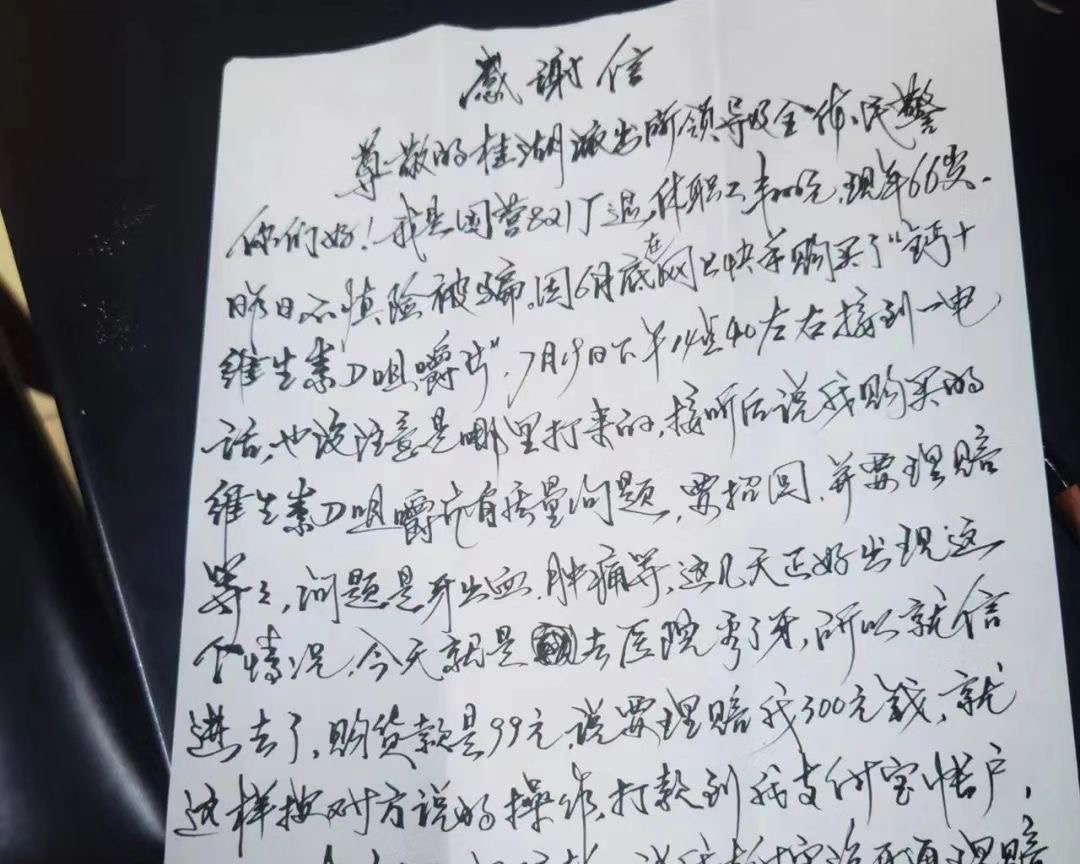 感谢信
尊敬的桂湖派出所领导及全体民警
你们好！我是国营821厂退休职工，现年66岁.
昨日不慎险被骗。因6月底在网上快手购买了“钙十
维生素D咀嚼片”，7月9日下午14点40左右接到一电
话，也没注意是哪里打来的，接听后说我购买的
维生素D咀嚼片有质量问题，要招回，并要理赔
等等，问题是牙出血、肿痛等，这几天正好出现这
个情况，今天就是去医院看了牙，所以就信
进去了，购货款是99元，说要理赔我300元钱，就
这样按对方说的操作，打款到我支付宝帐户，
理赔